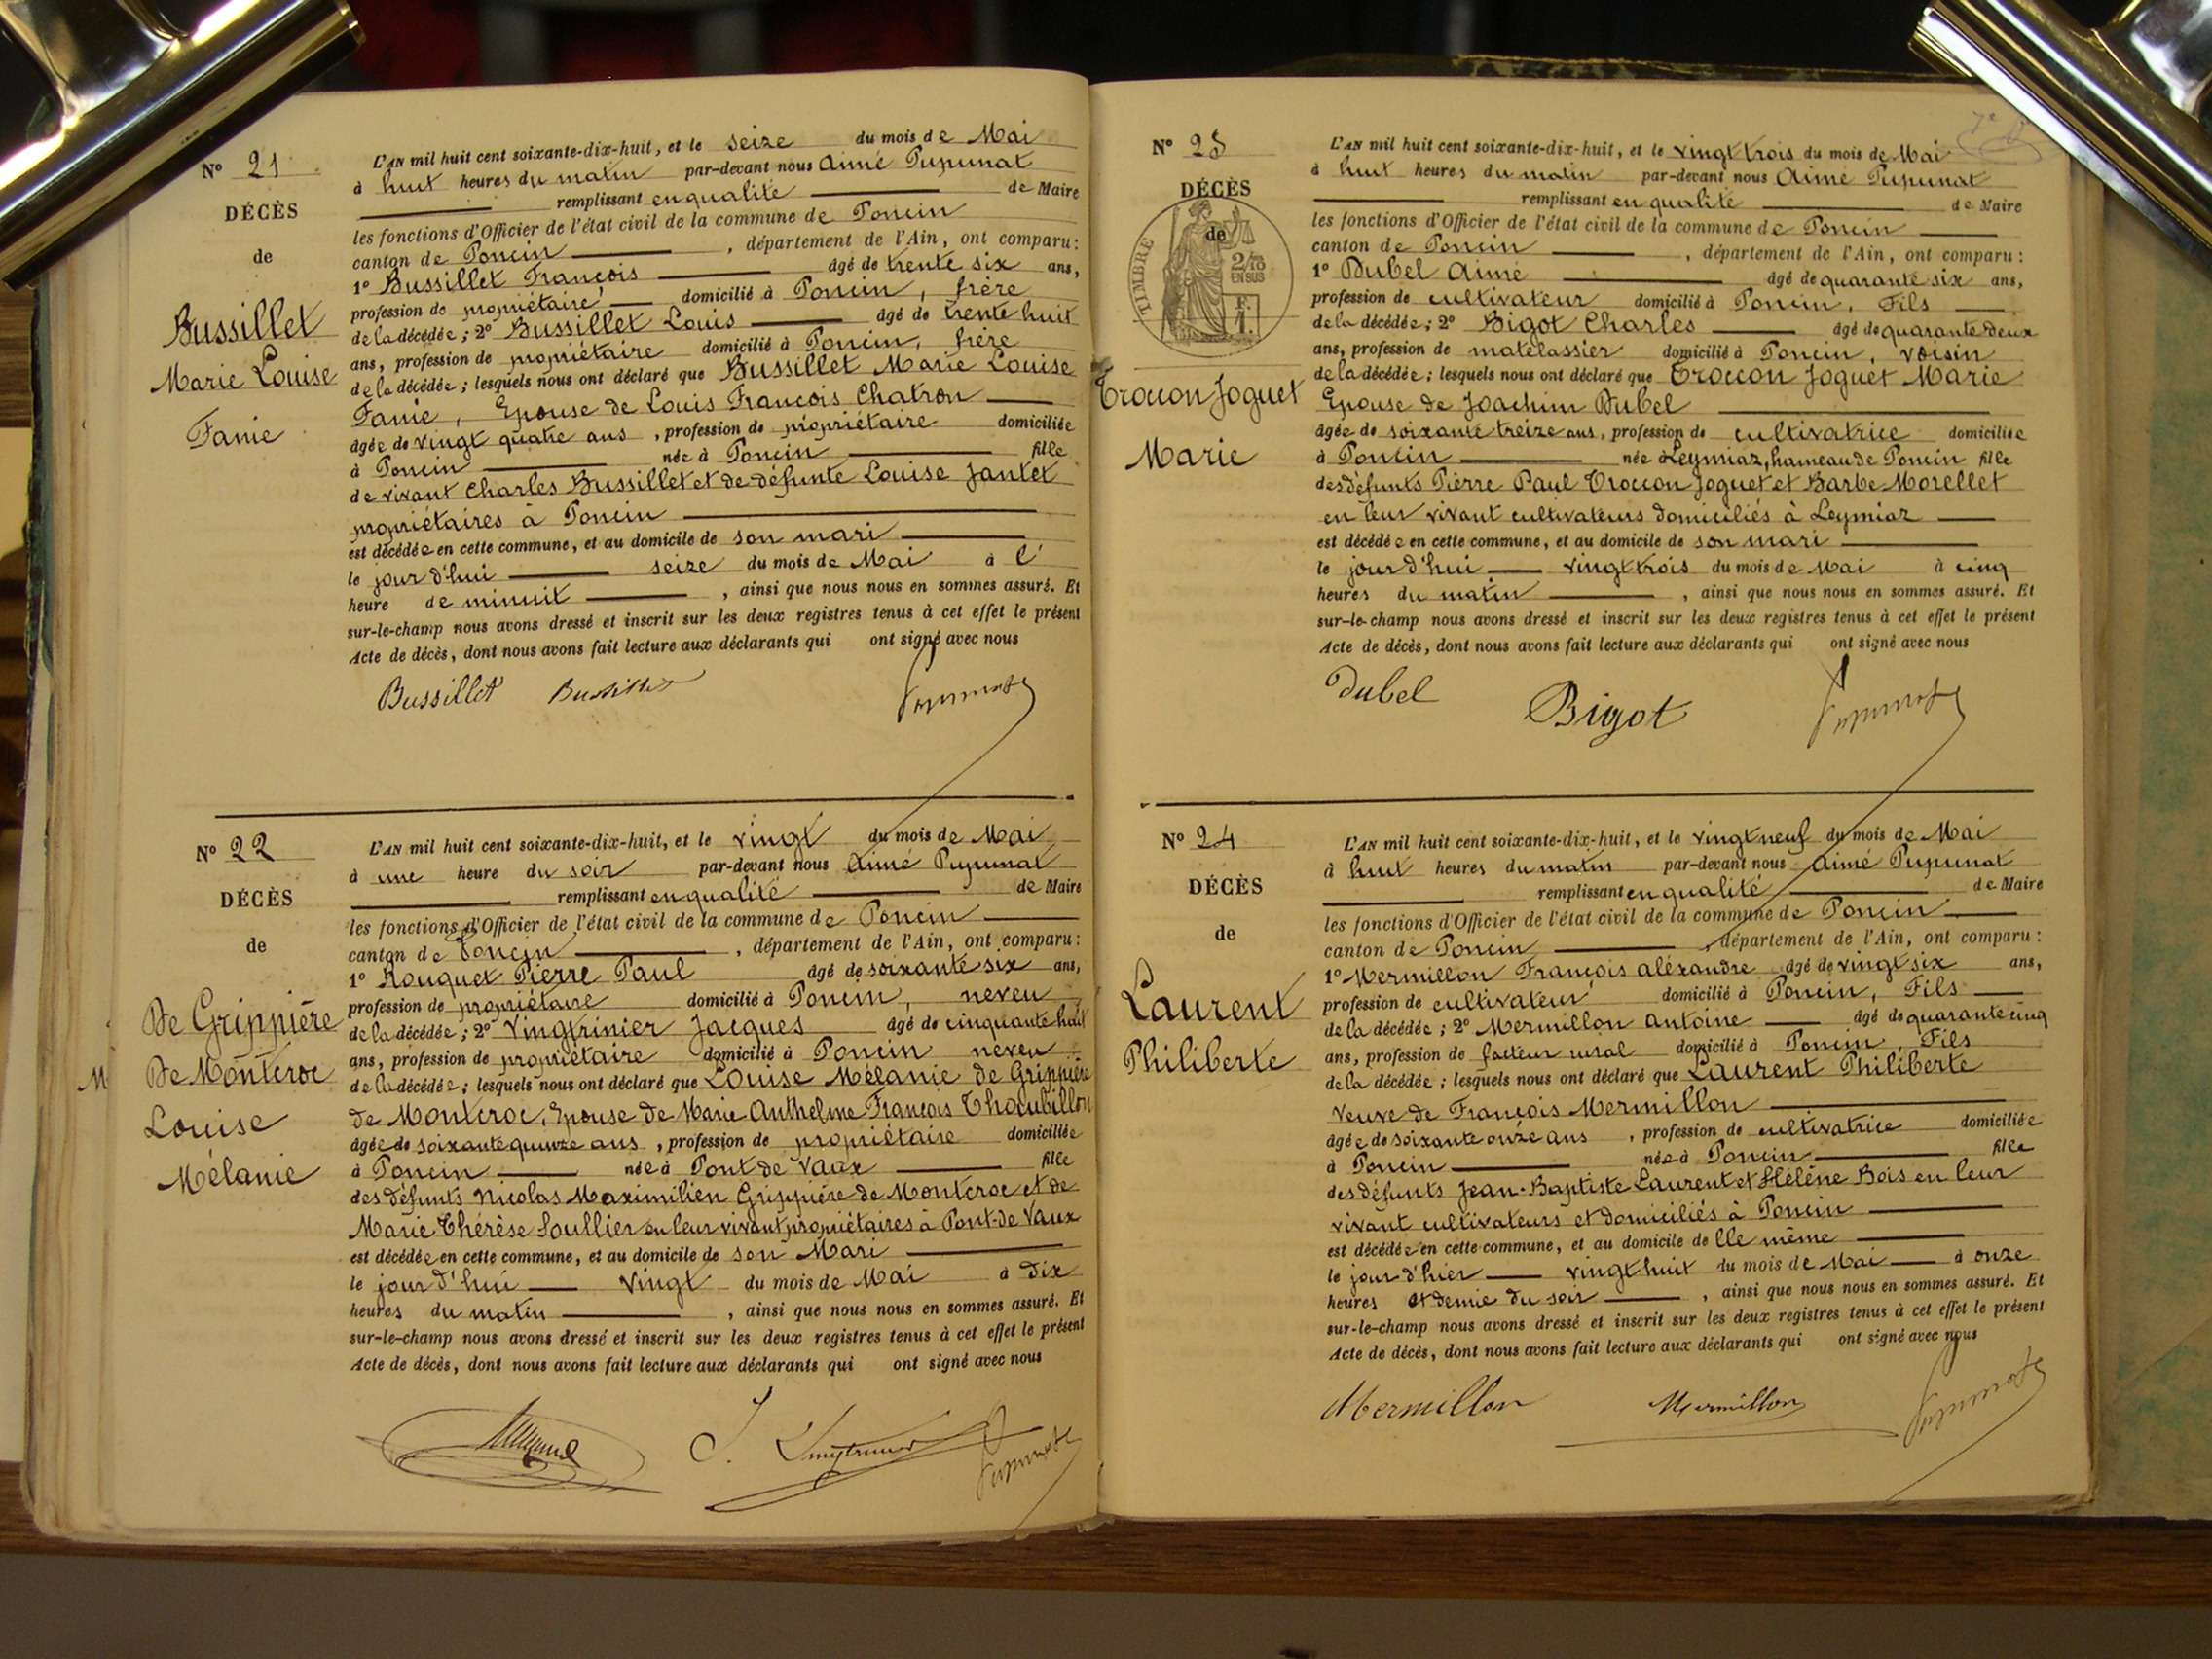 N° 21
DÉCÈS
de
Bussillet
Marie Louise
Fanie
L'AN mil huit cent soixante-dix-huit, et le seize du mois de Mai
à huit heures du matin par-devant nous Aimé Pupunat
remplissant en qualité de Maire
les fonctions d'Officier de l'état civil de la commune de Poncin
canton de Poncin, département de l'Ain, ont comparu :
1° Bussillet François âgé de trente six ans,
profession de propriétaire, domicilié à Poncin, frère
de la décédée ; 2° Bussillet Louis âgé de trente huit
ans, profession de propriétaire domicilié à Poncin, frère
de la décédée ; lesquels nous ont déclaré que Bussillet Marie Louise
Fanie, Epouse de Louis François Chatron
âgée de vingt quatre ans, profession de propriétaire domiciliée
à Poncin née à Poncin fille
de vivant Charles Bussillet et de défunte Louise Jantet
propriétaires à Poncin
est décédée en cette commune, et au domicile de son mari
le jour d'hui seize du mois de Mai à l'
heure de minuit, ainsi que nous nous en sommes assuré. Et
sur-le-champ nous avons dressé et inscrit sur les deux registres tenus à cet effet le présent
Acte de décès, dont nous avons fait lecture aux déclarants qui ont signé avec nous
Bussillet Bussillet Pupunat
N° 22
DÉCÈS
de
De Grippière
De Montcroc
M
Louise
Mélanie
L'AN mil huit cent soixante-dix-huit, et le vingt du mois de Mai
à une heure du soir par-devant nous Aimé Pupunat
remplissant en qualité de Maire
les fonctions d'Officier de l'état civil de la commune de Poncin
canton de Poncin, département de l'Ain, ont comparu :
1° Rouquet Pierre Paul âgé de soixante six ans,
profession de propriétaire domicilié à Poncin, neveu
de la décédée ; 2° Vingtrinier Jacques âgé de cinquante huit
ans, profession de propriétaire domicilié à Poncin neveu
de la décédée ; lesquels nous ont déclaré que Louise Mélanie de Grippière
de Montcroc, Epouse de Marie Anthelme François Thoubillon
âgée de soixante quinze ans, profession de propriétaire domiciliée
à Poncin née à Pont de Vaux fille
des défunts Nicolas Maximilien Grippière de Montcroc et de
Marie Thérèse Soullier en leur vivant propriétaires à Pont-de Vaux
est décédée en cette commune, et au domicile de son Mari
le jour d'hui vingt du mois de Mai à dix
heures du matin, ainsi que nous nous en sommes assuré. Et
sur-le-champ nous avons dressé et inscrit sur les deux registres tenus à cet effet le présent
Acte de décès, dont nous avons fait lecture aux déclarants qui ont signé avec nous
J. Vingtrinier Pupunat
N° 23
DÉCÈS
de
TIMBRE
2/10
EN SUS
Troccon Joguet
Marie
L'AN mil huit cent soixante-dix-huit, et le vingt trois du mois de Mai
à huit heures du matin par-devant nous Aimé Pupunat
remplissant en qualité de Maire
les fonctions d'Officier de l'état civil de la commune de Poncin
canton de Poncin, département de l'Ain, ont comparu :
1° Dubel Aimé âgé de quarante six ans,
profession de cultivateur domicilié à Poncin, Fils
de la décédée ; 2° Bigot Charles âgé de quarante deux
ans, profession de matelassier domicilié à Poncin, voisin
de la décédée ; lesquels nous ont déclaré que Troccon Joguet Marie
Epouse de Joachim Dubel
âgée de soixante treize ans, profession de cultivatrice domiciliée
à Poncin née à Leymiaz, hameau de Poncin fille
des défunts Pierre Paul Troccon Joguet et Barbe Morellet
en leur vivant cultivateurs domiciliés à Leymiaz
est décédée en cette commune, et au domicile de son mari
le jour d'hui vingt trois du mois de Mai à cinq
heures du matin, ainsi que nous nous en sommes assuré. Et
sur-le-champ nous avons dressé et inscrit sur les deux registres tenus à cet effet le présent
Acte de décès, dont nous avons fait lecture aux déclarants qui ont signé avec nous
Dubel Bigot Pupunat
N° 24
DÉCÈS
de
Laurent
Philiberte
L'AN mil huit cent soixante-dix-huit, et le vingt neuf du mois de Mai
à huit heures du matin par-devant nous Aimé Pupunat
remplissant en qualité de Maire
les fonctions d'Officier de l'état civil de la commune de Poncin
canton de Poncin, département de l'Ain, ont comparu :
1° Mermillon François aléxandre âgé de vingt six ans,
profession de cultivateur domicilié à Poncin, Fils
de la décédée ; 2° Mermillon Antoine âgé de quarante cinq
ans, profession de facteur rural domicilié à Poncin, Fils
de la décédée ; lesquels nous ont déclaré que Laurent Philiberte
veuve de François Mermillon
âgée de soixante onze ans, profession de cultivatrice domiciliée
à Poncin née à Poncin fille
des défunts Jean-Baptiste Laurent et Hélène Bois en leur
vivant cultivateurs et domiciliés à Poncin
est décédée en cette commune, et au domicile de lle même
le jour d'hier vingt huit du mois de Mai à onze
heures et demie du soir, ainsi que nous nous en sommes assuré. Et
sur-le-champ nous avons dressé et inscrit sur les deux registres tenus à cet effet le présent
Acte de décès, dont nous avons fait lecture aux déclarants qui ont signé avec nous
Mermillon Mermillon Pupunat